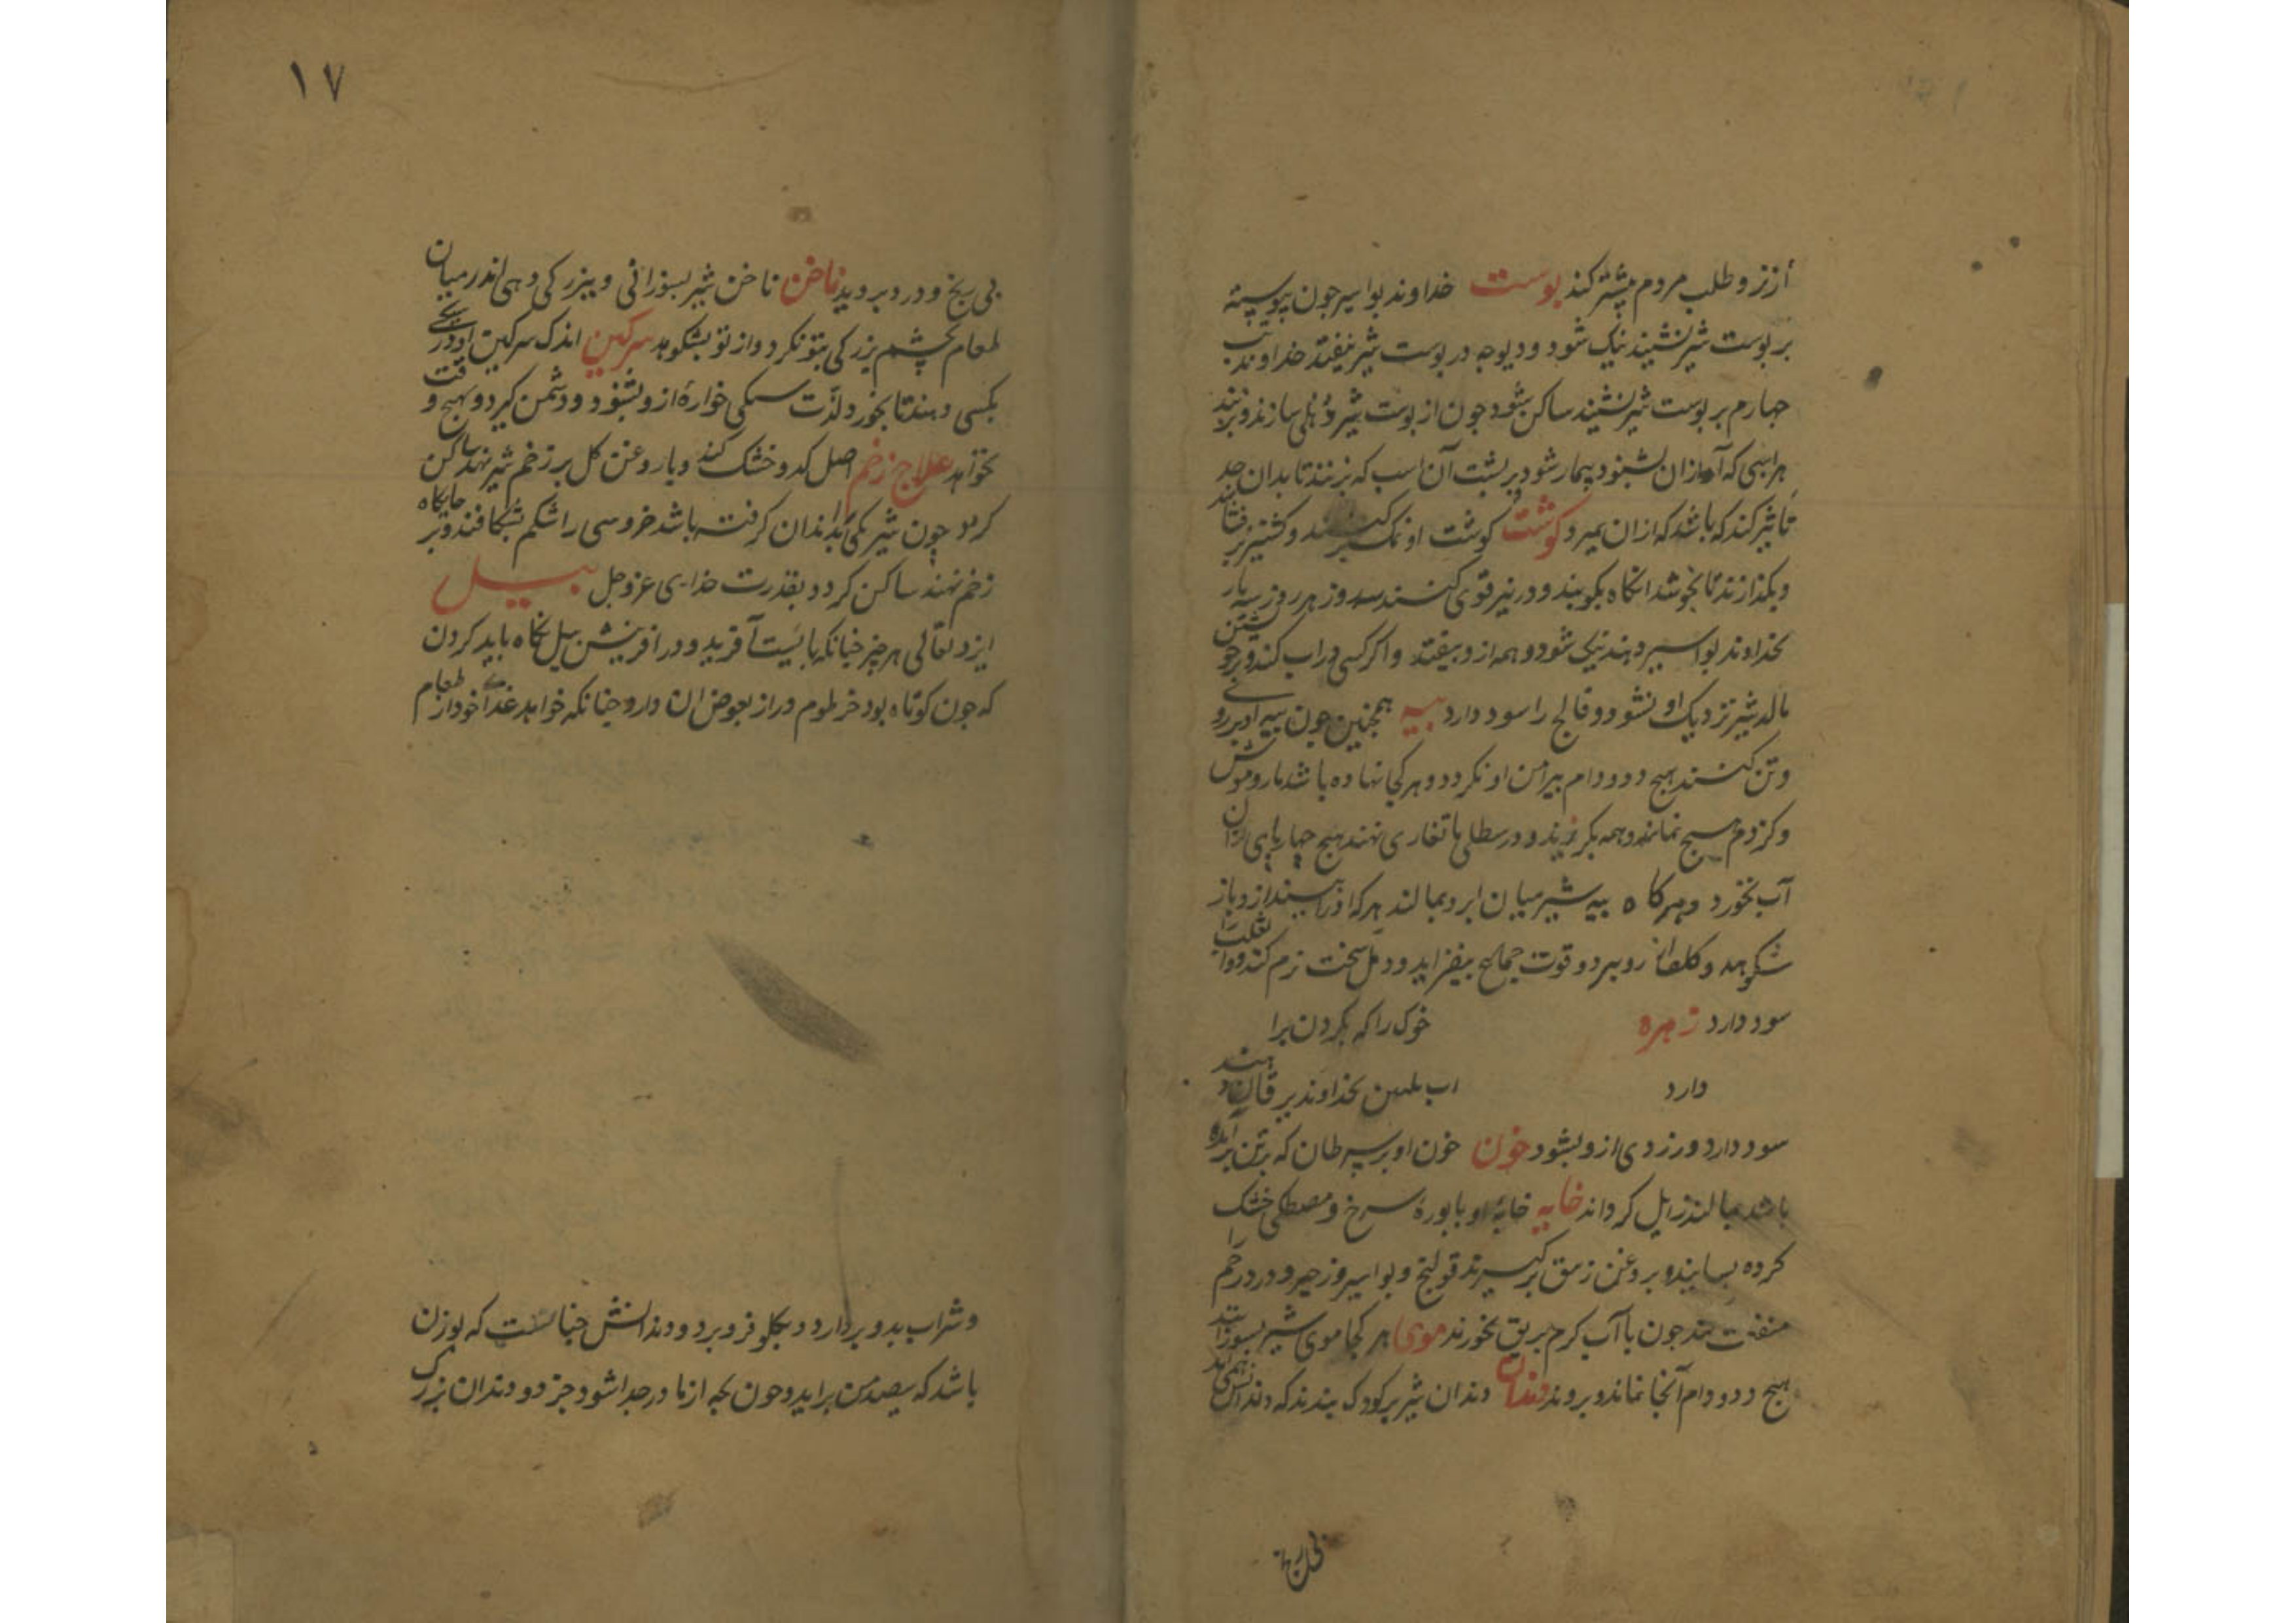 ازز و طلب مردم بیشتر کند بوست خداوند بواسیر جون پیوسته
بر بوست شیر نشیند نیک شود و دیوجه در بوست شیر نیفتد خداوند تب
جهارم بر بوست شیر نشیند ساکن شود جون از بوست شیر دُهلی سازند و بزنند
هر اسبی که آواز آن بشنود بیمار شود بر بشت آن اسب که بزنند تا بدان حد
تأثیر کند که باشد که ازان بمیرد کوشت کوشت او نمک کنند و کشنیز بر
و بکذارند تا بخوشد انکاه بکوبند و در نیر قوی کنند سه روز هر روز سه بار
بخداوند بواسیر دهند نیک شود و همه ازو بیفتد و اکر کسی در اب کند و بر خویشتن
مالد شیر نزدیک او نشود و فالج را سود دارد بیه همجنین جون بیه او بر روی
و تن کنند هیج دد و دام بیرامن او نکردد و هر کجا نهاده باشد مار و موش
و کزدم هیج نماند و همه بکریزند و در سطلی یا تغاری نهند هیج جهار پای ازان
آب نخورد و هر کاه بیه شیر میان ابرو بمالند هر که او را بیند ازو باز
شکوهد و کلف از رو ببرد و قوت جماع بیفزاید و دمل سخت نرم کند و
سود دارد زهره خوک را که بکردن برا
دارد اب بخداوند یرقان دهند
سود دارد و زردی ازو بشود خون خون او بر سرطان که بر تن برآمده
باشد بمالند زایل کرداند خایه خایهٔ او با بورهٔ سرخ و مصطکی خشک
کرده بسایند و بروغن زنبق برکیرند قولنج و بواسیر و زحیر و درد رحم را
منفعت کند جون با آب کرم بریق بخورند موی هر کجا موی شیر بسوزانند
هیج دد و دام آنجا نماند و بروند دندان دندان شیر بر کودک بندند که دندانش همی آید
بی رنج
۱۷
بی رنج و درد بروید ناخن ناخن شیر بسوزانی و ببزرکی دهی اندر میان
طعام بچشم بزرکی بتو نکرد و از تو بشکوهد سرکین اندک سرکین او در سیکی
بکسی دهند تا بخورد لذت سیکی خواره ازو بشود و دشمن کیرد و هیج وقت
نخواهد علاج زخم اصل کدو خشک کند و با روغن کل بر زخم شیر نهند ساکن
کردد جون شیر یکی بدندان کرفته باشد خروسی را شکم بشکافند و بر جایکاه
زخم نهند ساکن کردد بقدرت خدای عز و جل بیل
ایزد تعالی هر چیز جنانکه بایست آفرید و در افرینش بیل نکاه باید کردن
که جون کوتاه بود خرطوم دراز بعوض ان دارد جنانکه خواهد غدای خود از طعام
و شراب بدو بردارد و بکلو فرو برد و دندانش جنانست که بوزن
باشد که بیصد من براید و جون بجه از مادر جدا شود جز دو دندان بزرک